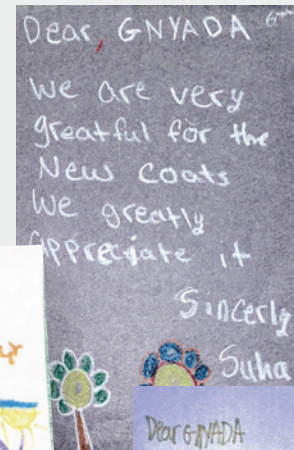 Dear, GNYADA 6th
We are very
greatful for the
New coats
We greatly
Appreciate it
Sincerly
Suha
Dear GNYADA